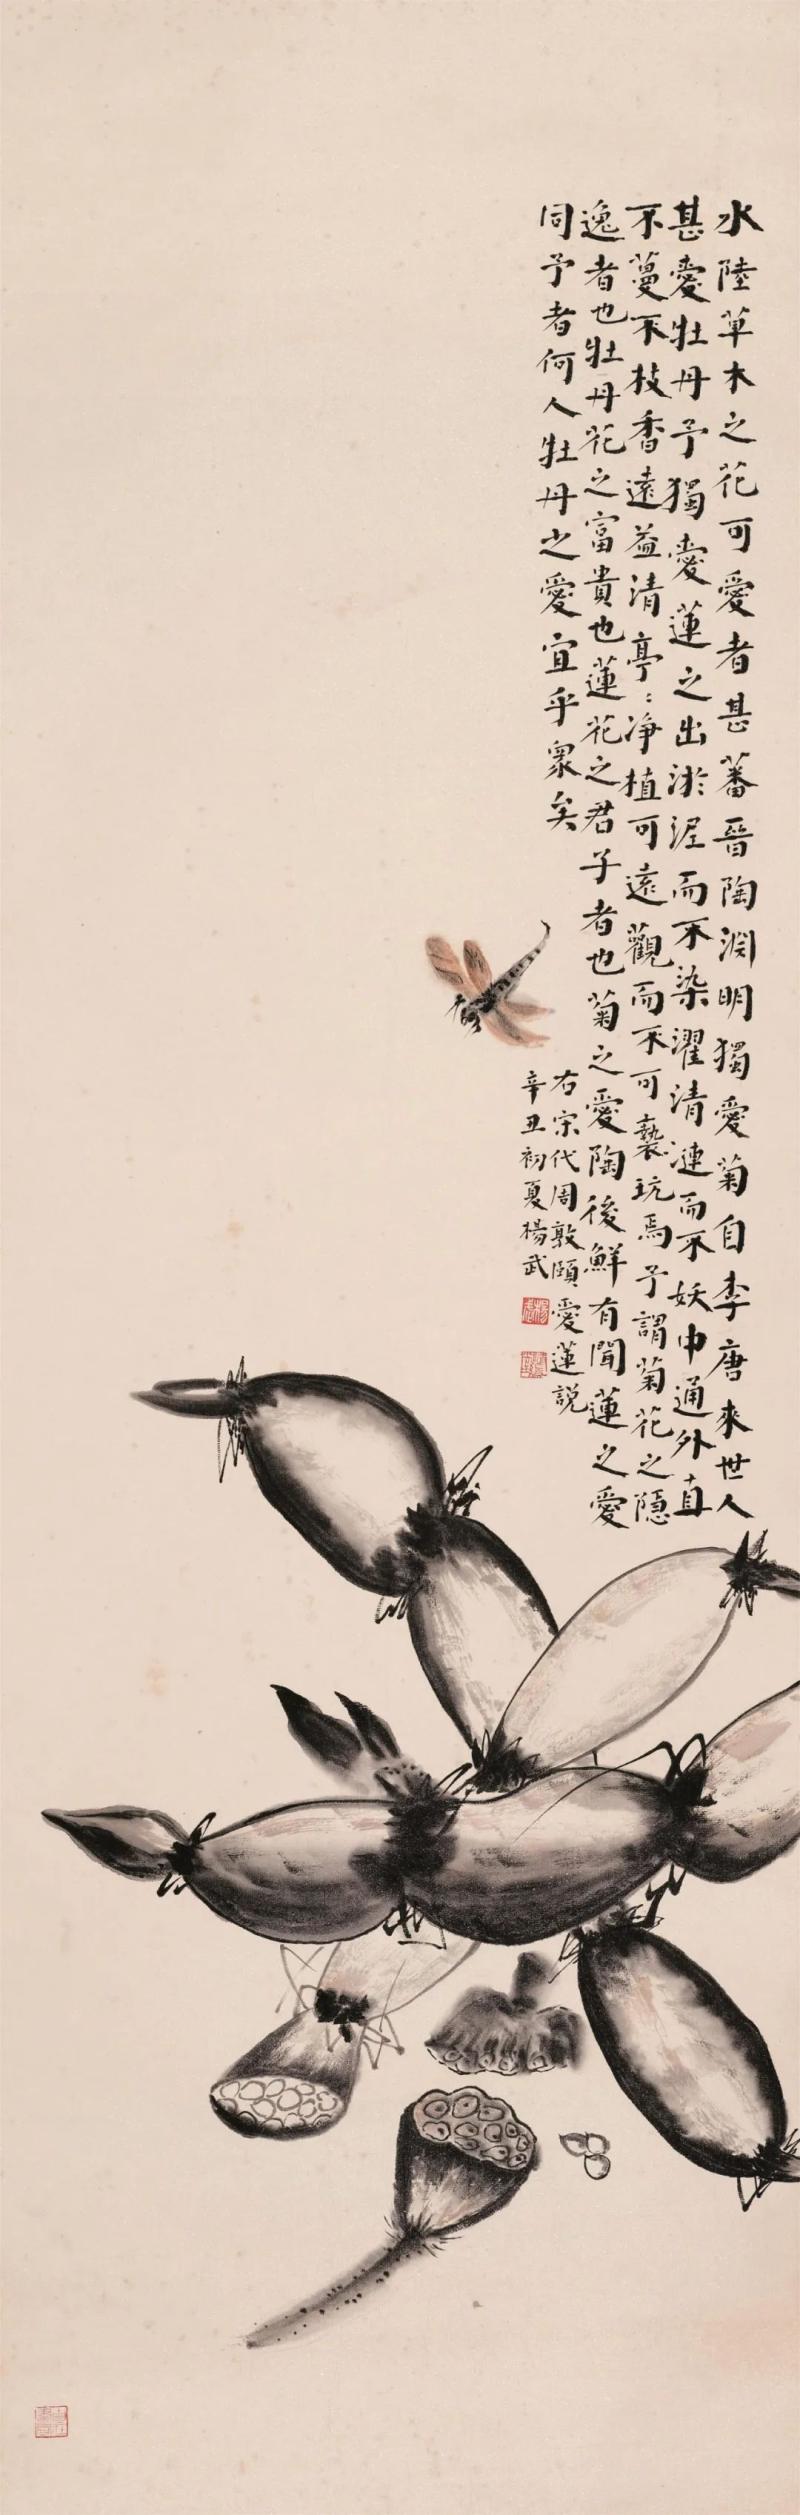 水陸草木之花可愛者甚蕃晉陶淵明獨愛菊自李唐來世人
甚愛牡丹予獨愛蓮之出淤泥而不染濯清漣而不妖中通外直
不蔓不枝香遠益清亭〻净植可遠觀而不可褻玩焉予謂菊花之隱
逸者也牡丹花之富貴也蓮花之君子者也菊之愛陶後鮮有聞蓮之愛
同予者何人牡丹之愛宜乎眾矣
右宋代周敦頤愛蓮説
辛丑初夏楊武